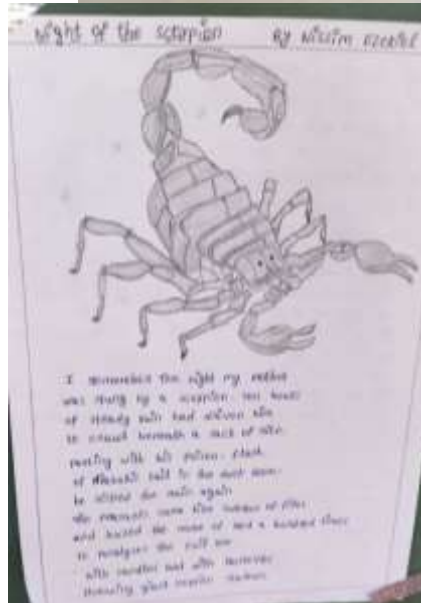 Night of the scorpion By Nissim Ezekiel
I remember the night my mother
was stung by a scorpion. Ten hours
of steady rain had driven him
to crawl beneath a sack of rice.
parting with his poison - flash
of diabolic tail in the dark room-
he risked the rain again
the peasants came like swarms of flies
and buzzed the name of God a hundred times
to paralyse the evil one
with candles and with lanterns
throwing giant scorpion shadows